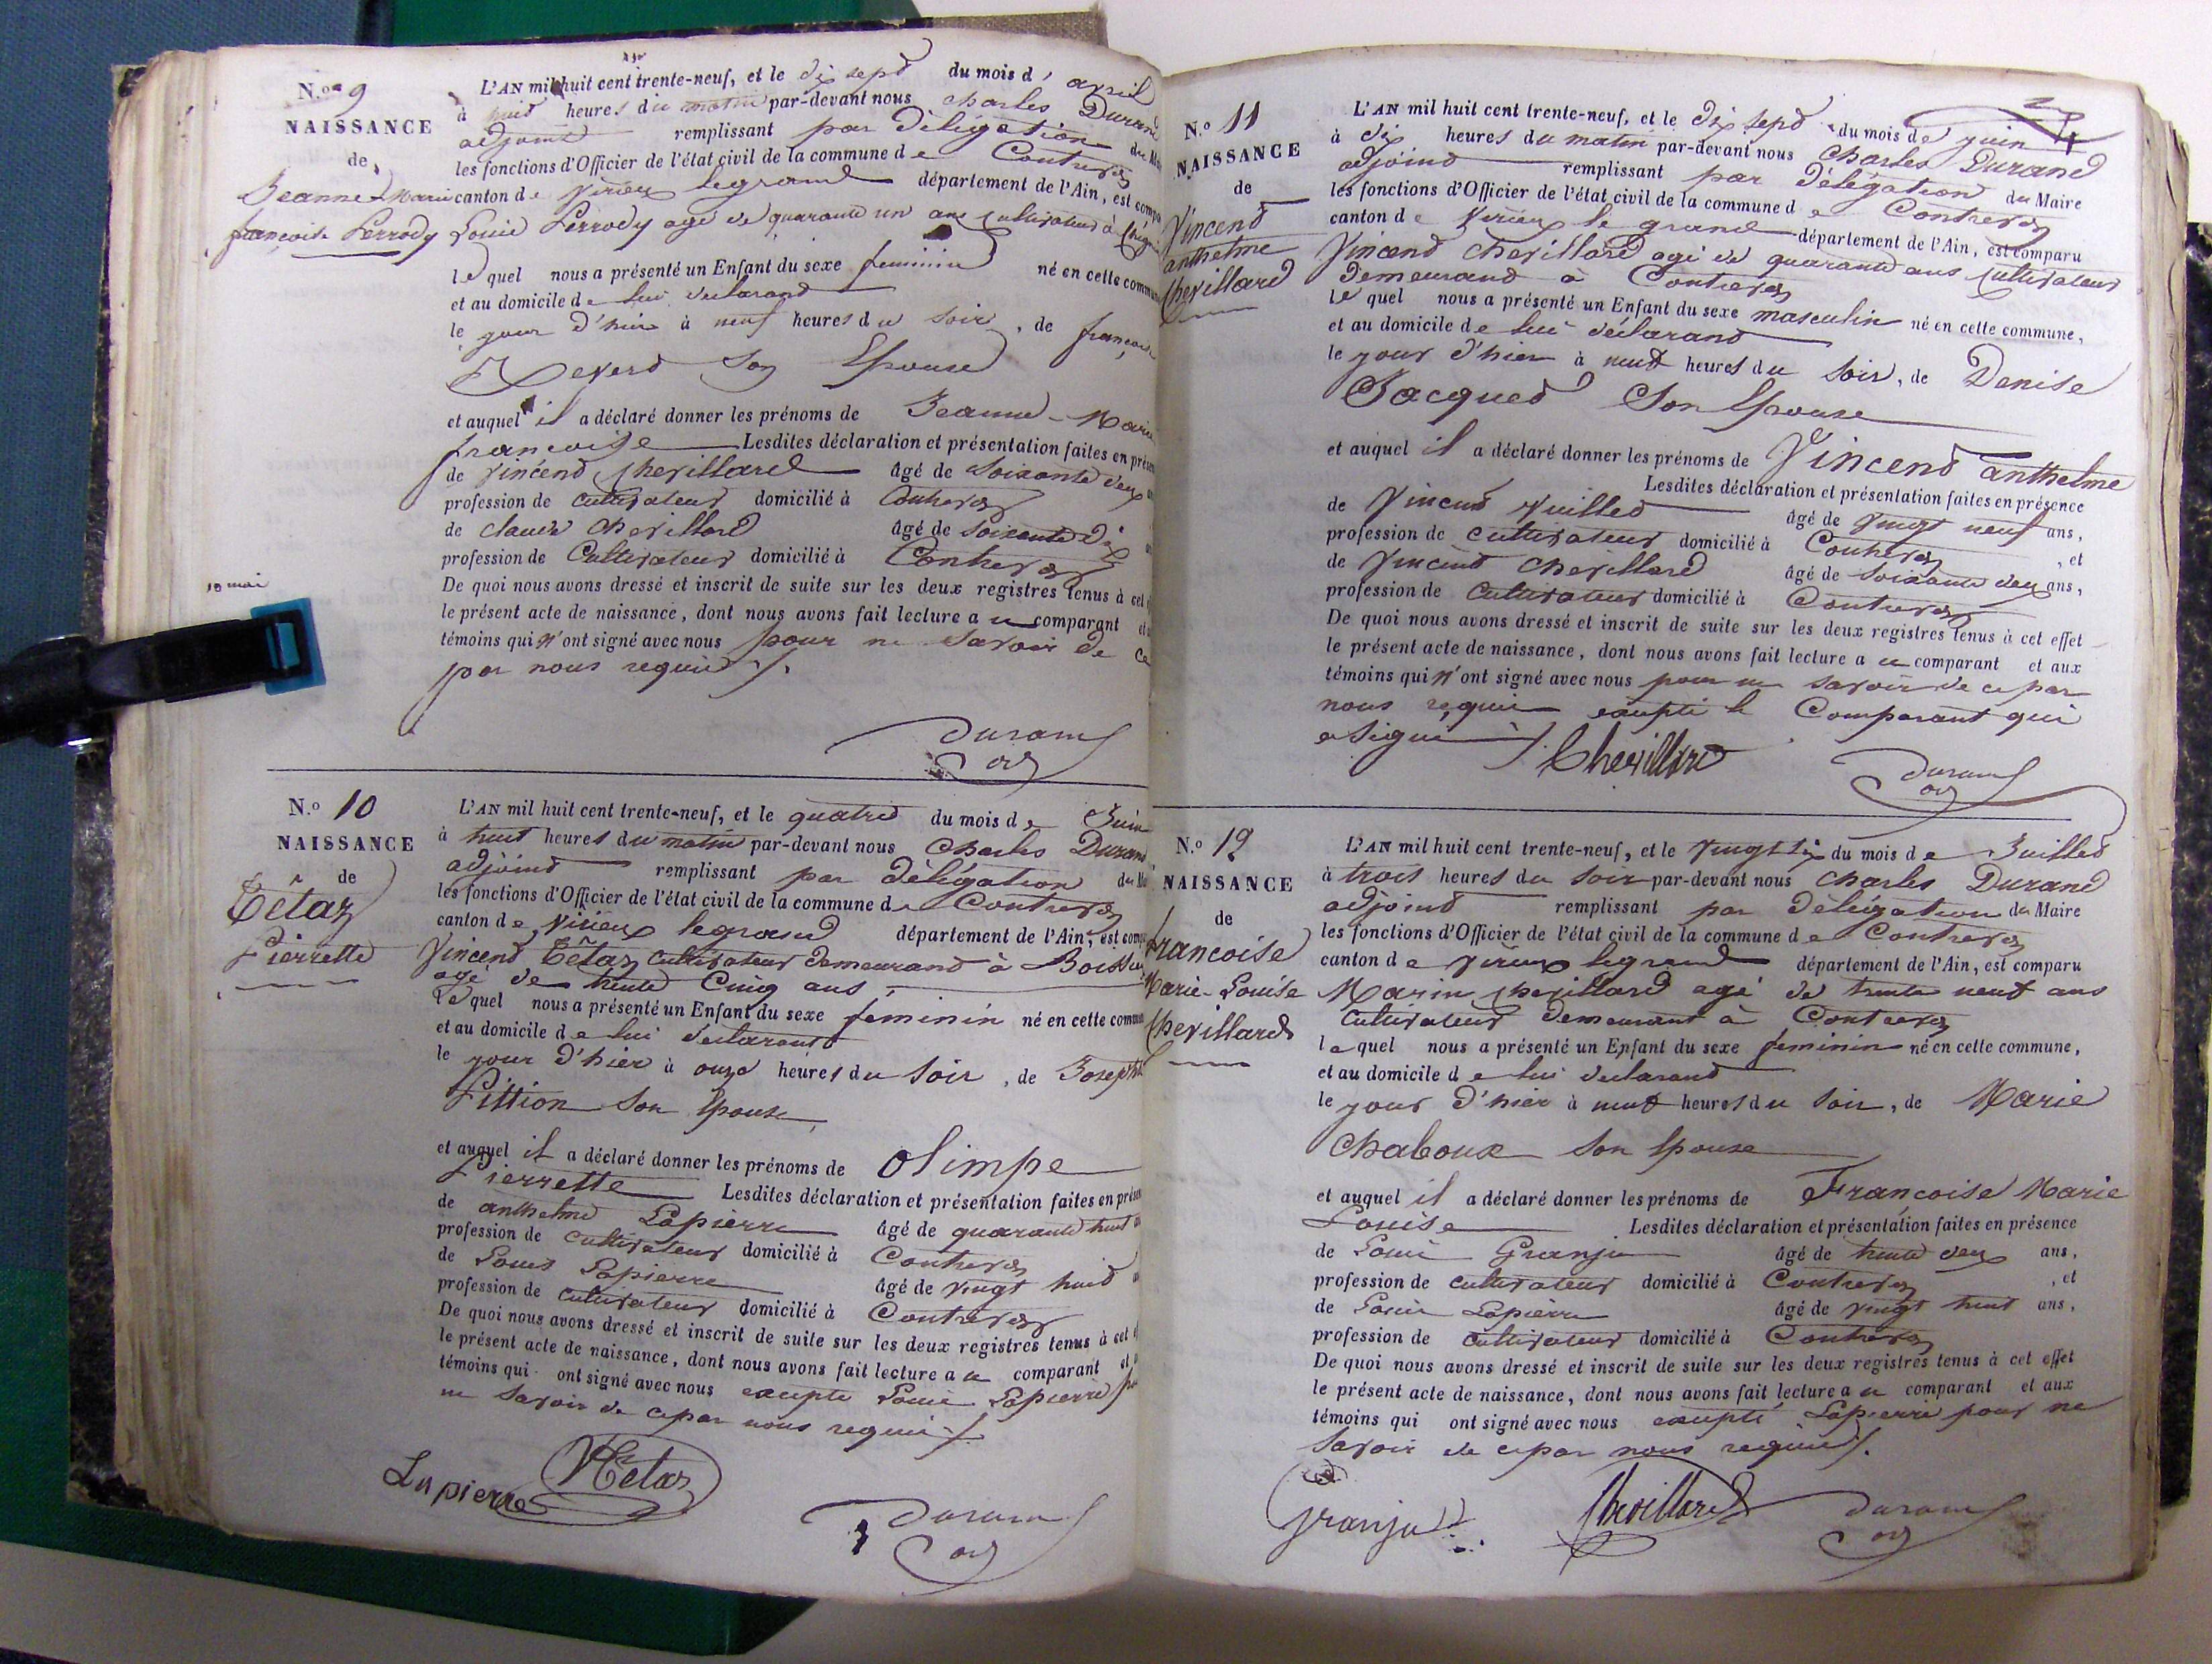 N.o 9
NAISSANCE
de
Jeanne-Marie
francoise Perrody
L'AN mil huit cent trente-neuf, et le dix sept du mois d' avril
à huit heures du matin par-devant nous charles Durand
adjoint remplissant par délégation du
les fonctions d'Officier de l'état civil de la commune de Contrevoz
canton de Virieux legrand département de l'Ain, est
Louis Perrody agé de quarante un ans cultivateur à
lequel nous a présenté un Enfant du sexe feminin né en cette
et au domicile de lui declarant
le jour d'hier à neuf heures du soir, de francoise
son Epouse
et auquel il a déclaré donner les prénoms de Jeanne-Marie
francoise Lesdites déclaration et présentation faites en
de Vincend chevillard âgé de soixante deux
profession de cultivateur domicilié à Contrevoz
de claude chevillard âgé de soixante dix
profession de Cultivateur domicilié à Contrevoz
De quoi nous avons dressé et inscrit de suite sur les deux registres tenus à cet
le présent acte de naissance, dont nous avons fait lecture au comparant et
témoins qui n'ont signé avec nous pour ne savoir de ce
par nous requis ./.
10 mai
Durand
adj
N.o 10
NAISSANCE
de
Têtaz
Pierrette
L'AN mil huit cent trente-neuf, et le quatre du mois de Juin
à huit heures du matin par-devant nous Charles Durand
adjoint remplissant par délégation du
les fonctions d'Officier de l'état civil de la commune de Contrevoz
canton de Virieux legrand département de l'Ain, est
Vincend Têtaz cultivateur demeurand à
agé de trente Cinq ans,
lequel nous a présenté un Enfant du sexe feminin né en cette
et au domicile de lui declarant
le jour d'hier à onze heures du soir, de Joseph
Pittion son Epouse
et auquel il a déclaré donner les prénoms de Olimpe
Pierrette Lesdites déclaration et présentation faites en
de anthelme Lapierre âgé de quarante huit
profession de cultivateur domicilié à Contrevoz
de Louis Lapierre âgé de vingt huit
profession de cultivateur domicilié à Contrevoz
De quoi nous avons dressé et inscrit de suite sur les deux registres tenus à cet
le présent acte de naissance, dont nous avons fait lecture au comparant et
témoins qui ont signé avec nous excepté Louis Lapierre
ne savoir de ce par nous requis ./.
Lapierre VTetaz
Durand
adj
N.o 11
NAISSANCE
de
Vincend
anthelme
Chevillard
L'AN mil huit cent trente-neuf, et le dix sept du mois de juin
à dix heures du matin par-devant nous Charles Durand
adjoind remplissant par délégation du Maire
les fonctions d'Officier de l'état civil de la commune de Contrevoz
canton de Virieux le grand département de l'Ain, est comparu
Vincend chevillard agé de quarante ans cultivateur
demeurand à Contrevoz
lequel nous a présenté un Enfant du sexe masculin né en cette commune,
et au domicile de lui déclarand
le jour d'hier à neuf heures du soir, de Denise
Jacqued Son Epouse
et auquel il a déclaré donner les prénoms de Vincend anthelme
Lesdites déclaration et présentation faites en présence
de Vincend Vuilled âgé de vingt neuf ans,
profession de cultivateur domicilié à Contrevoz, et
de Vincend chevillard âgé de soixante deux ans,
profession de Cultivateur domicilié à Contrevoz
De quoi nous avons dressé et inscrit de suite sur les deux registres tenus à cet effet
le présent acte de naissance, dont nous avons fait lecture au comparant et aux
témoins qui n'ont signé avec nous pour ne savoir de ce par
nous requis excepté le Comparant qui
a signé ./. Chevillard
Durand
adj
N.o 12
NAISSANCE
de
francoise
Marie-Louise
Chevillard
L'AN mil huit cent trente-neuf, et le vingt six du mois de Juilled
à trois heures du soir par-devant nous Charles Durand
adjoind remplissant par délégation du Maire
les fonctions d'Officier de l'état civil de la commune de Contrevoz
canton de Virieux legrand département de l'Ain, est comparu
Marin chevillard agé de trente neuf ans
cultivateur demeurant à Contrevoz
lequel nous a présenté un Enfant du sexe feminin né en cette commune,
et au domicile de lui declarand
le jour d'hier à neuf heures du soir, de Marie
Chaboux son Epouse
et auquel il a déclaré donner les prénoms de Françoise Marie
Louise Lesdites déclaration et présentation faites en présence
de Louis Granju âgé de trente deux ans,
profession de cultivateur domicilié à Contrevoz, et
de Louis Lapierre âgé de vingt huit ans,
profession de cultivateur domicilié à Contrevoz
De quoi nous avons dressé et inscrit de suite sur les deux registres tenus à cet effet
le présent acte de naissance, dont nous avons fait lecture au comparant et aux
témoins qui ont signé avec nous excepté Lapierre pour ne
savoir de ce par nous requis ./.
Granju Chevillard Durand
adj